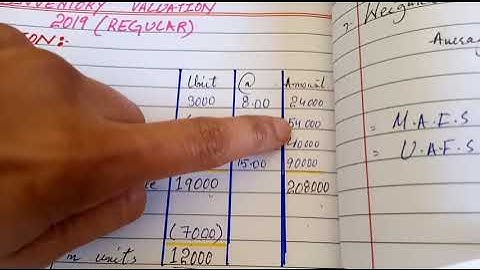 INVENTORY VALUATION
2019 (REGULAR)
Unit @ Amount
3000 8.00 24000
54000
40000
15.00 90000
19000 208000
(7000)
units 12000
= M.A.E.S
= U.A.F.S